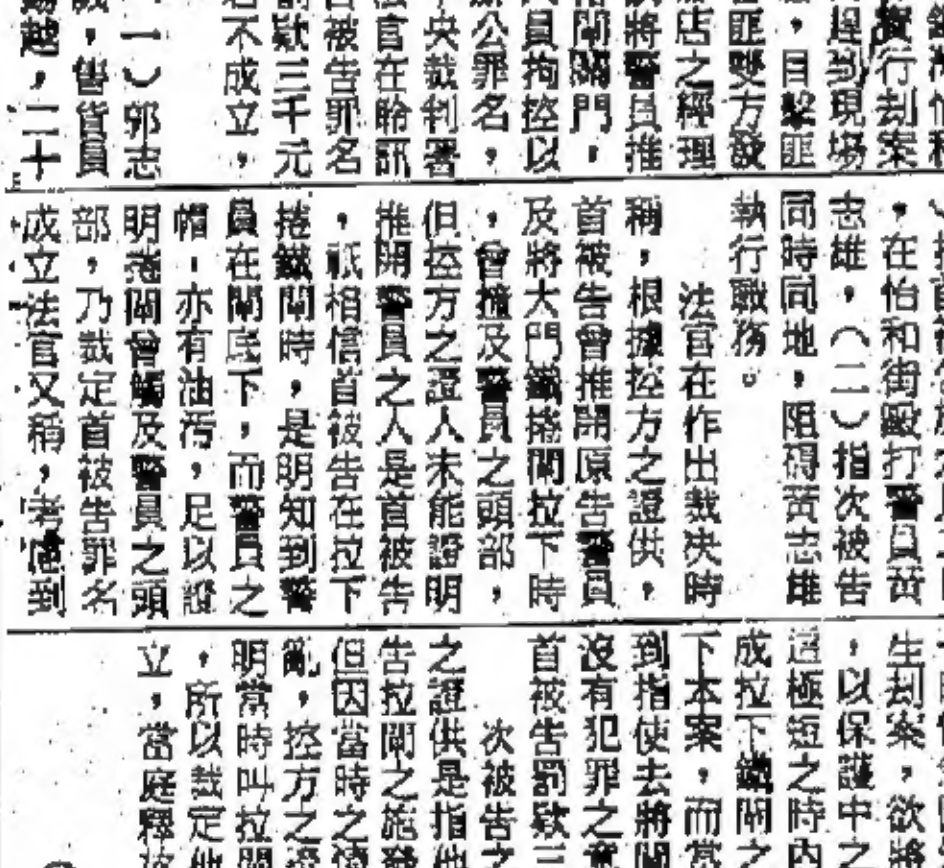 實行刦案
趕到現場
，目擊匪
匪雙方發
店之經理
將警員推
閘關門，
員拘控以
公罪名，
央裁判署
官在聆訊
被告罪名
欵三千元
不成立，
一）郭志
，售貨員
越，二十
，在怡和街毆打警員黃
志雄，（二）指次被告
同時同地，阻碍黃志雄
執行職務。
法官在作出裁決時
稱，根據控方之證供，
首被告曾推開原告警員
及將大門鐵捲閘拉下時
，曾撞及警員之頭部，
但控方之證人未能證明
推開警員之人是首被告
，祇相信首被告在拉下
捲鐵閘時，是明知到警
員在閘底下，而警員之
帽，亦有油污，足以證
明捲閘曾觸及警員之頭
部，乃裁定首被告罪名
成立法官又稱，考慮到
生刦案，欲將
，以保護中之
這極短之時內
成拉下鐵閘之
下本案，而當
到指使去將閘
沒有犯罪之意
首被告罰欵三
次被告之
之證供是指他
告拉閘之施發
但因當時之情
亂，控方之證
明當時叫拉閘
，所以裁定他
立，當庭釋放